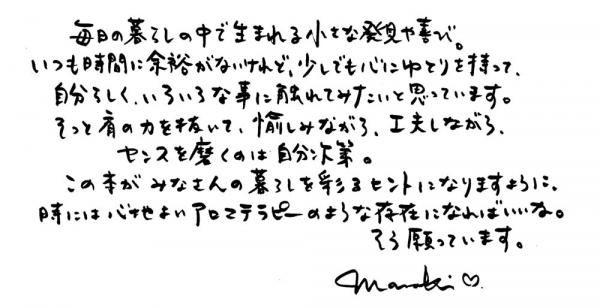 毎日の暮らしの中で生まれる小さな発見や喜び。
いつも時間に余裕がないけれど、少しでも心にゆとりを持って、
自分らしく、いろいろな事に触れてみたいと思っています。
そっと肩の力を抜いて、愉しみながら、工夫しながら、
センスを磨くのは自分次第。
この本がみなさんの暮らしを彩るヒントになりますように、
時には心地よいアロマテラピーのような存在になればいいな。
そう願っています。